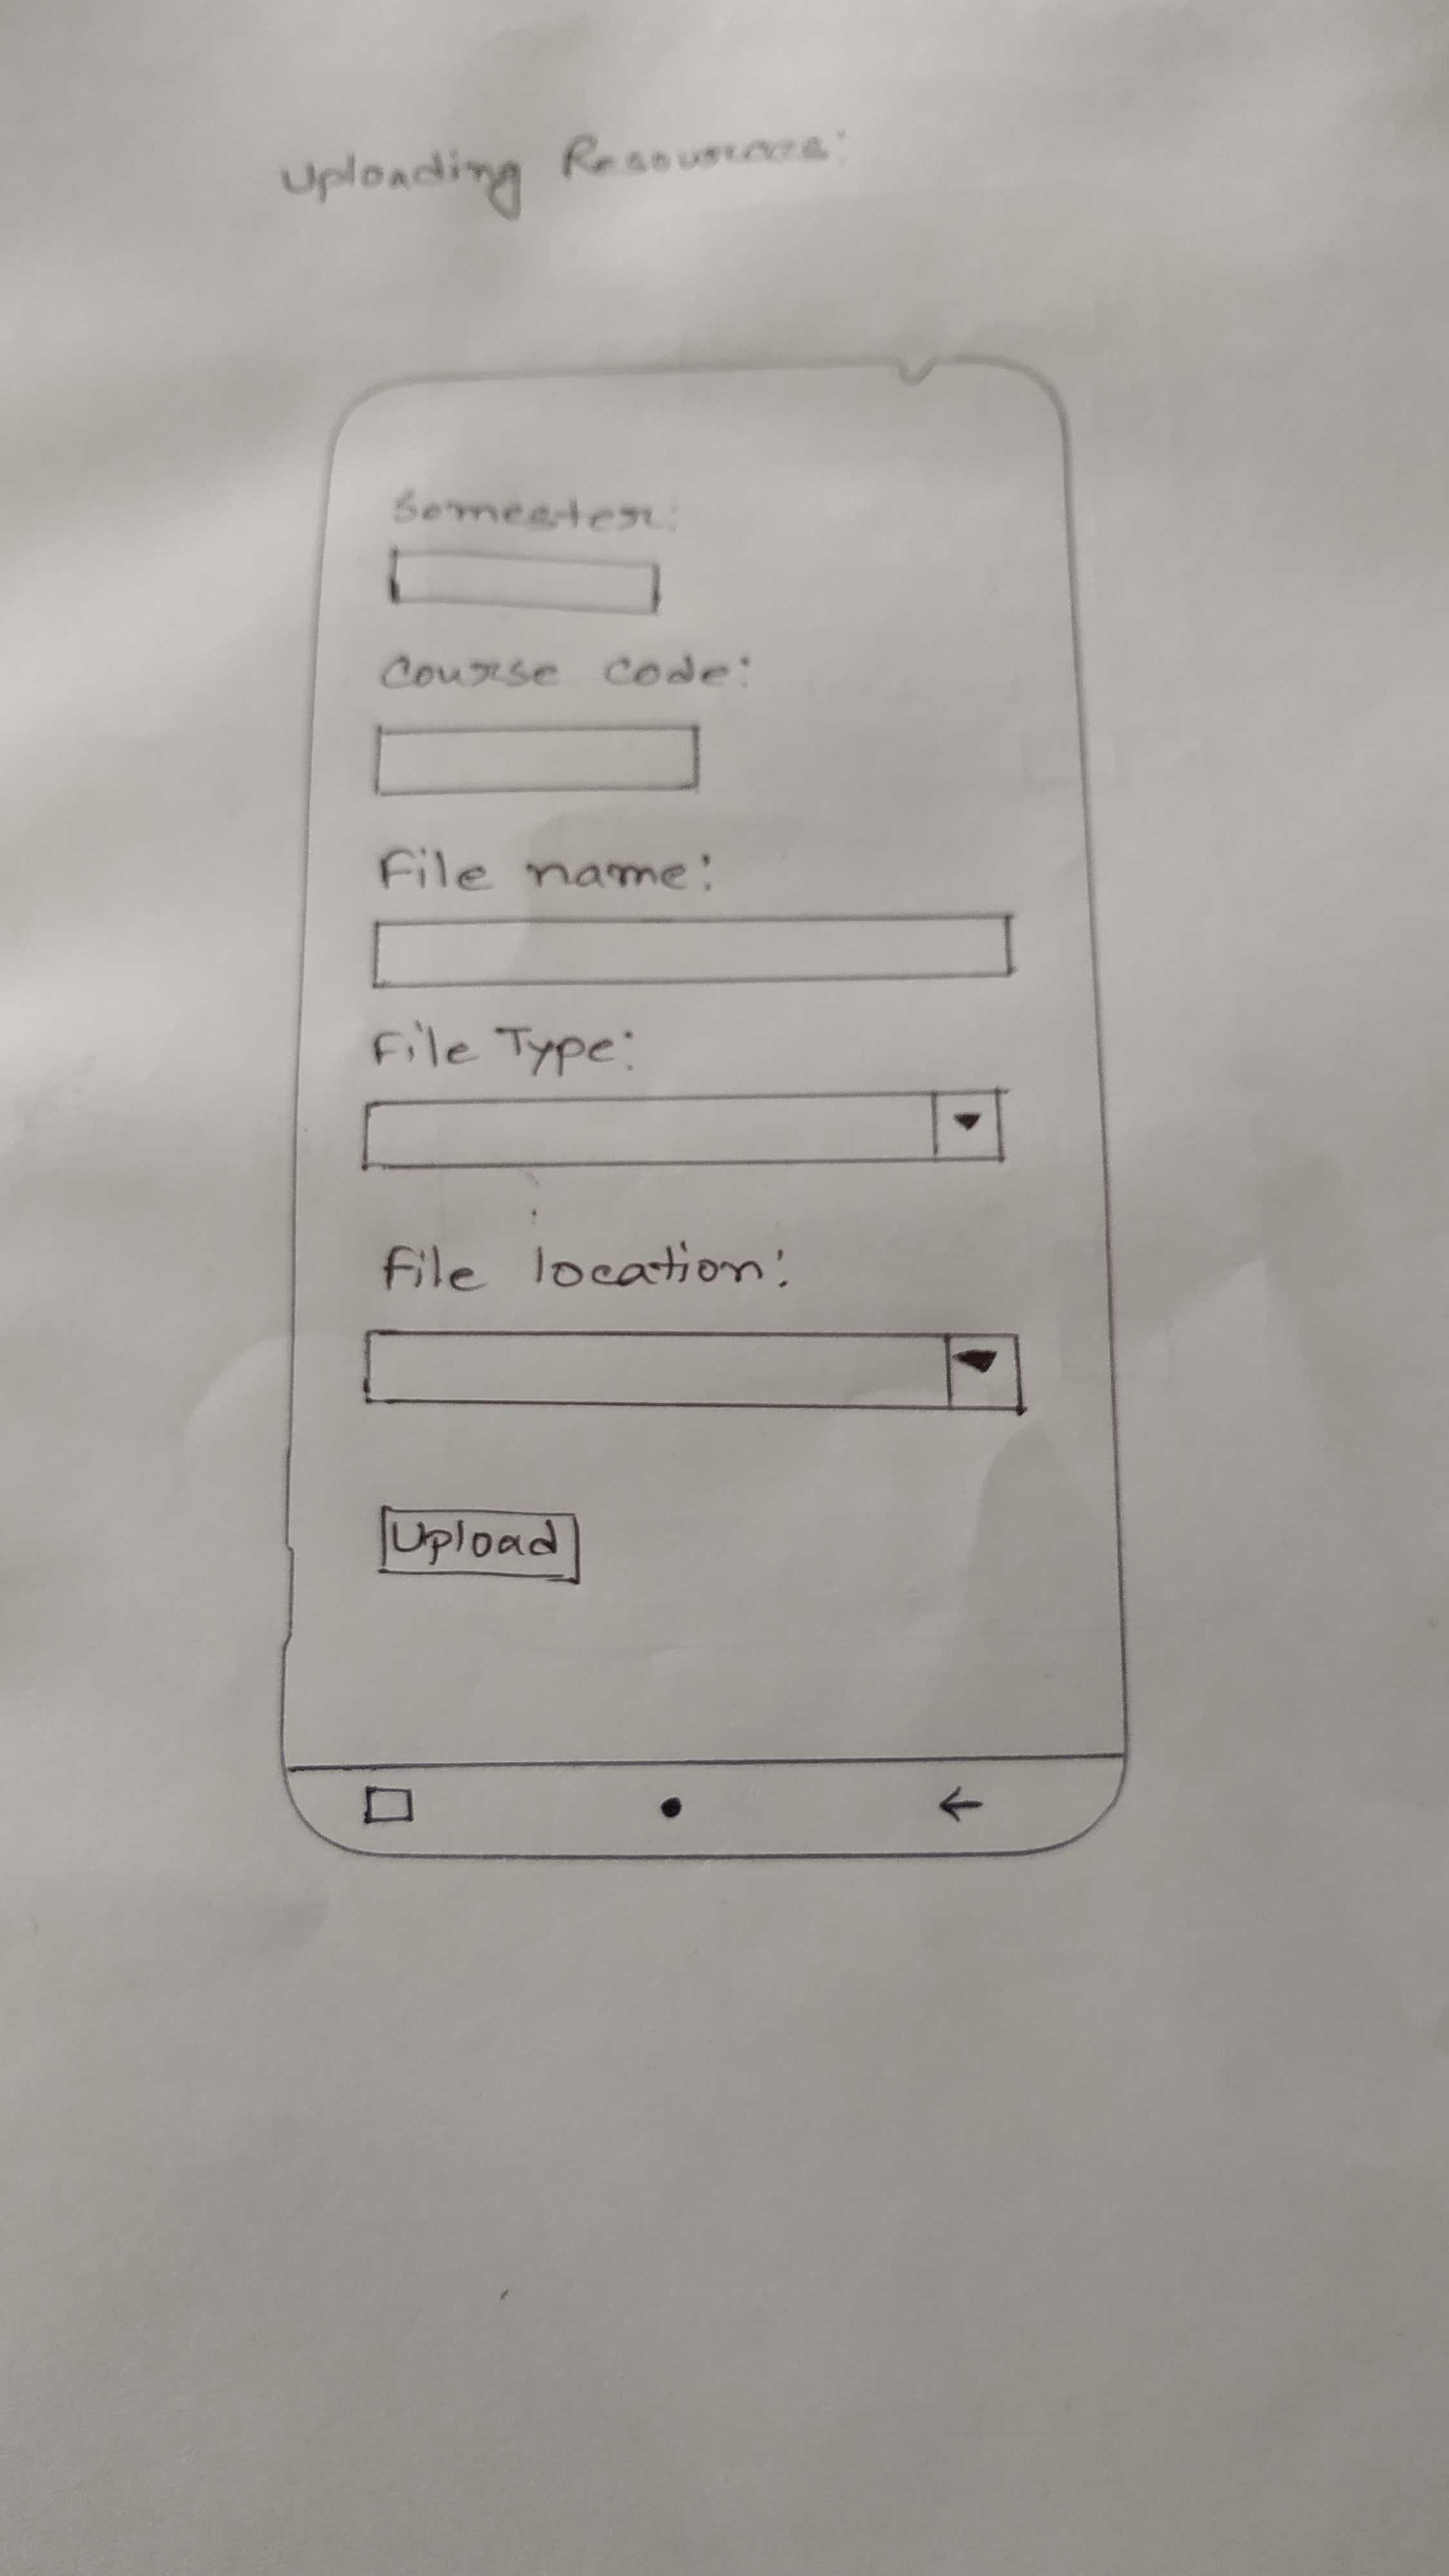 Uploading Resources:
Semester:
Course code:
File name:
File Type:
File location:
Upload